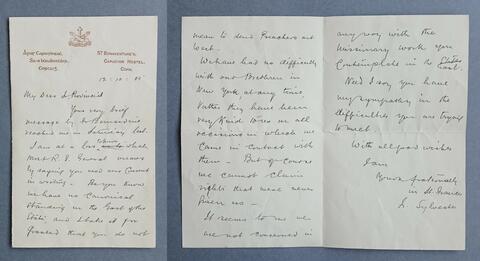 St Bonaventure's,
Capuchin Hostel,
Cork.
My Dear Fr Provincial
Your very brief
message by Fr Bonaventure
reached me on Saturday last.
I am at a loss to know to which
Most R. F. General means
by saying you need our Consent
in writing. As you know
we have no canonical
Standing in the East of the
States and I take it for
granted that you do not
mean to send Preachers out
West.
We have had no difficulty
with our Brethren in
New York at any time.
Rather they have been
very kind to us on all
occasions in which we
came in contact with
them - But of course
we cannot claim
rights that were never
given us -
It seems to me we
are not concerned in
any way with the
Missionary work you
Contemplate in the States
East.
Need I say you have
my sympathy in the
difficulties you are trying
to meet.
With all good wishes
I am
Yours fraternally
in St Francis
Fr Sylvester